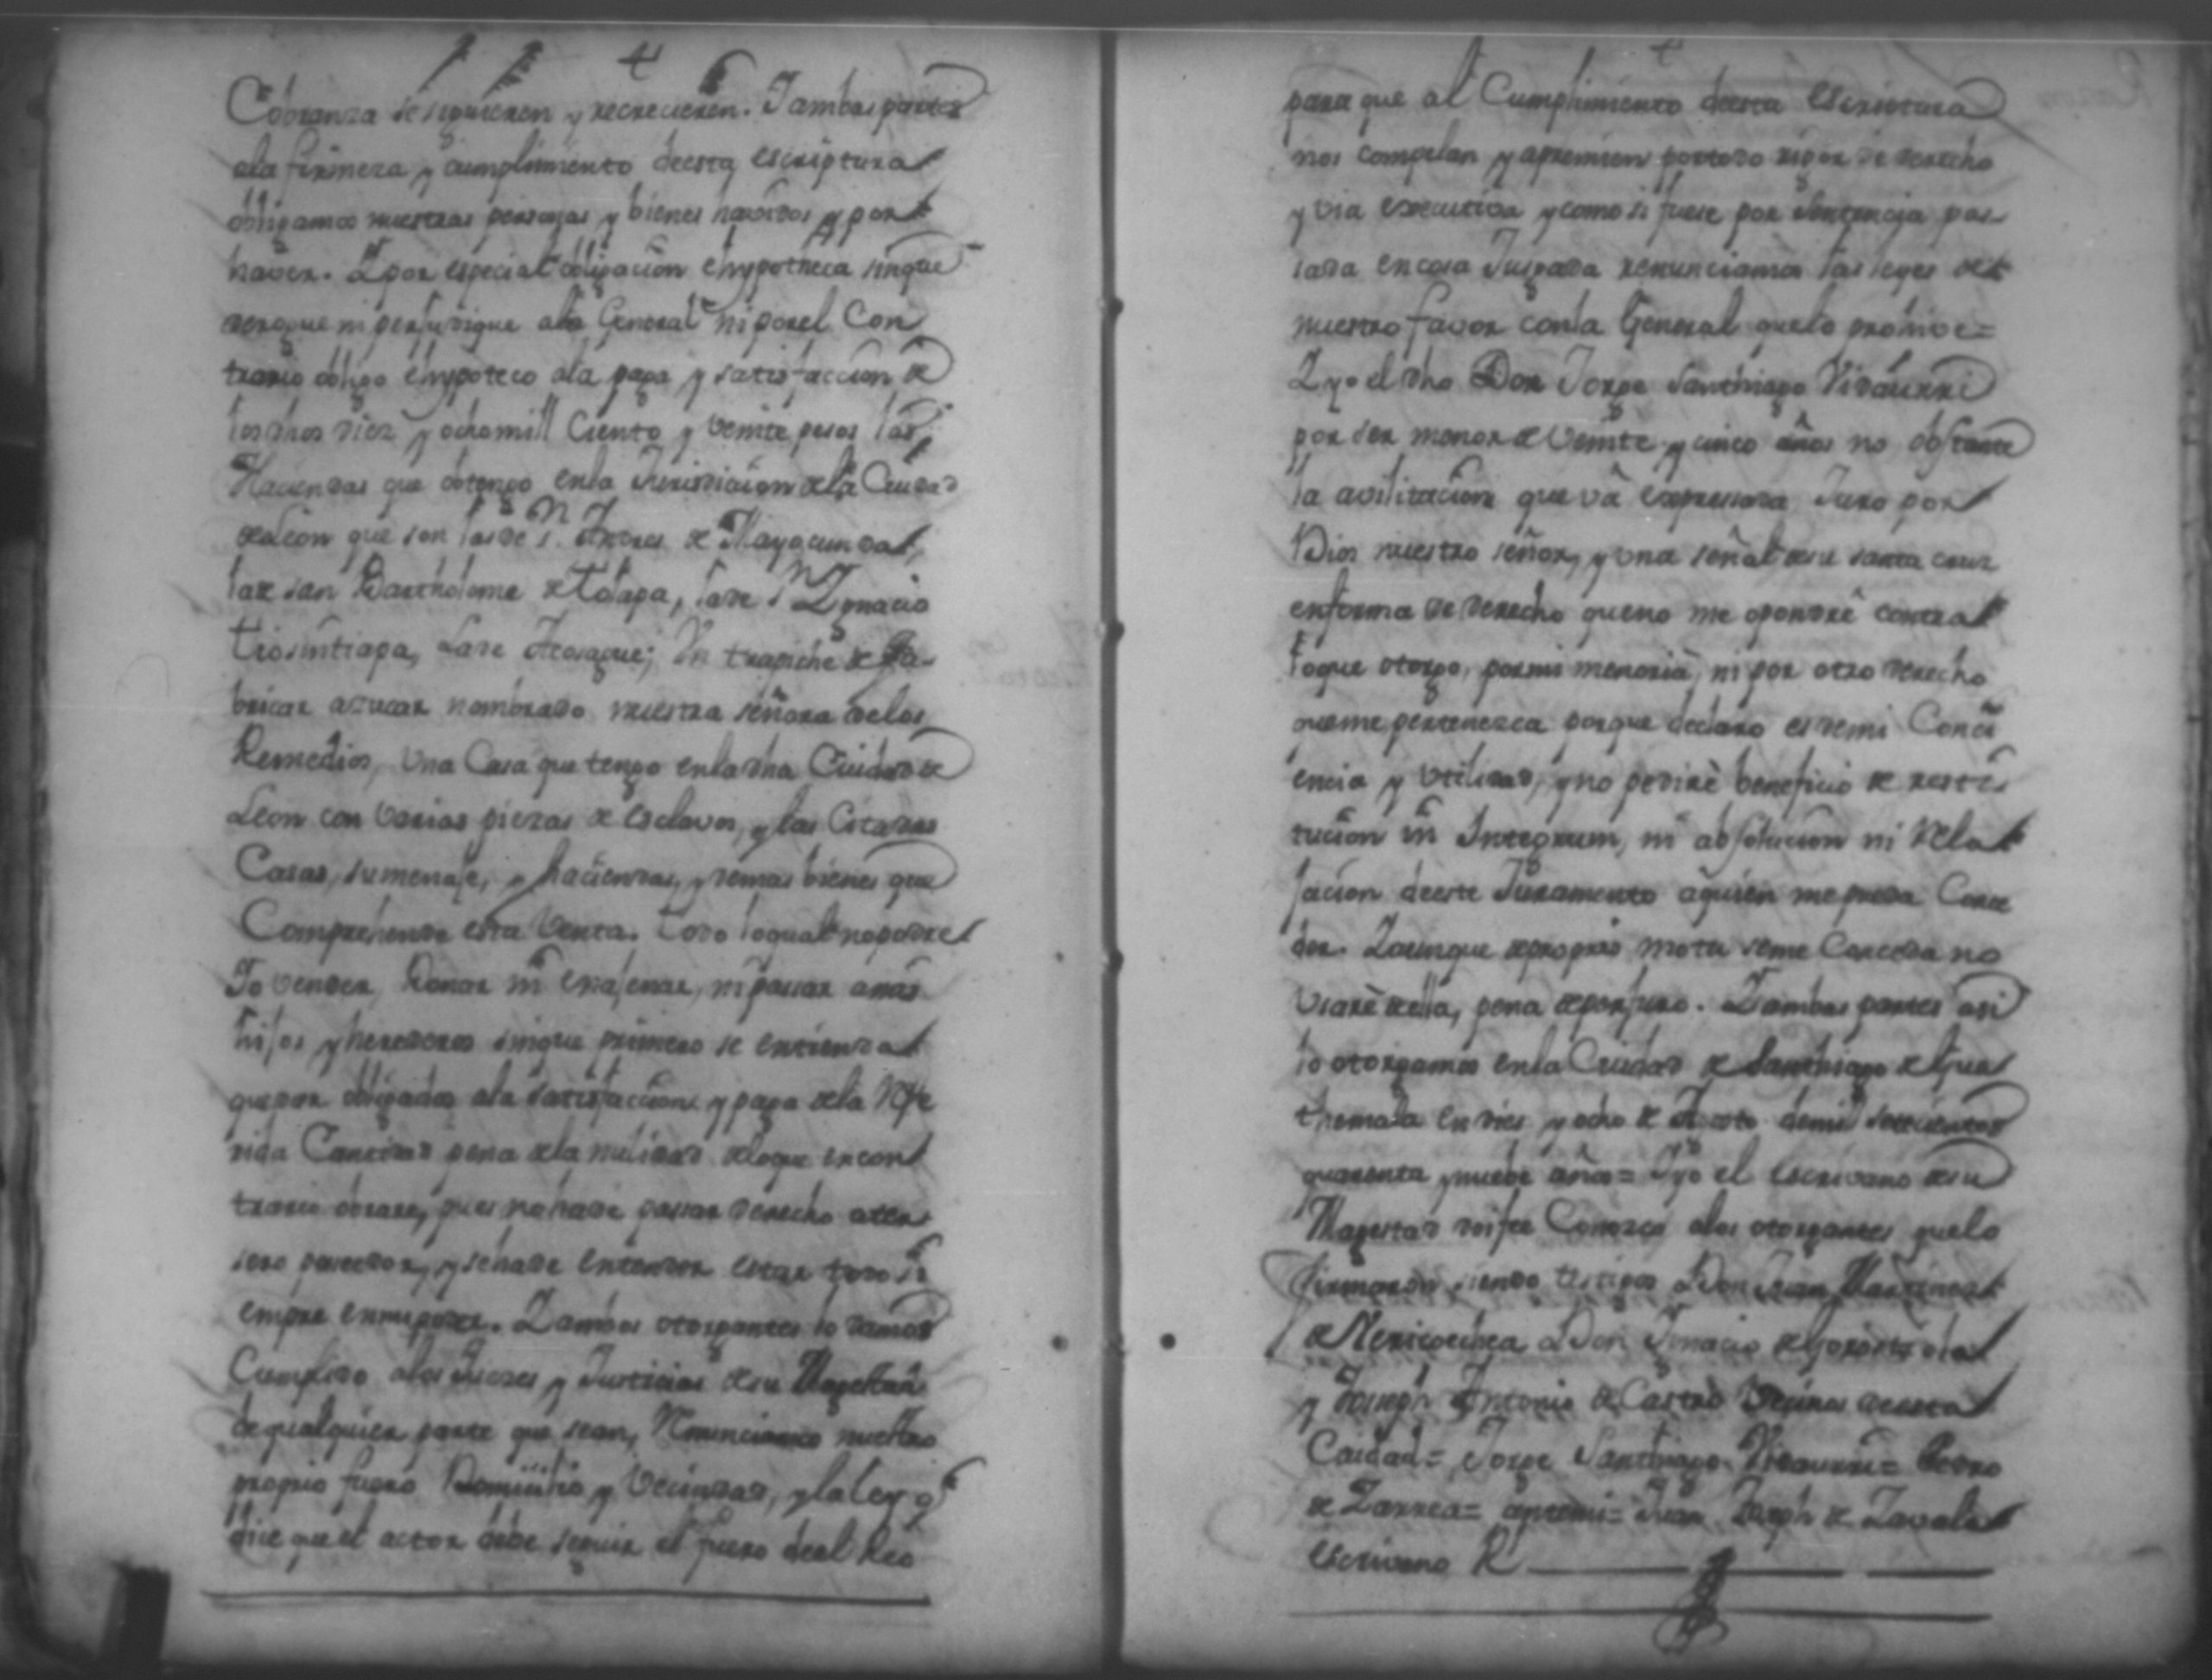 Cobranza se siguieren y recrecieren. Y ambas partes
ala firmeza y cumplimiento deesta escriptura
obligamos nuestras personas y bienes havidos y por
haver. Y por especial obligacion e hypotheca sin que
derogue ni perjudique ala General ni por el Con
trario obligo e hypoteco ala paga y satisfaccion de
los dhos diez y ocho mill Ciento y veinte pesos las
Haciendas que obtengo en la Jurisdicion de la Ciudad
de Leon que son las de Sn. Andres de
la de san Bartholome de la de Sn Ygnacio
la de Un trapiche de fa
bricar azucar nombrado nuestra señora de los
Remedios, Una Casa que tengo en la dha Ciudad de
Leon con varias piezas de esclavos, y las Citadas
Casas, su menaje, y haciendas, y demas bienes que
Comprehende esta Venta. todo lo qual no podre
Yo vender, Donar ni enajenar, ni passar a mis
hijos y herederos sin que primero se entienda
quedar obligados ala satisfaccion y paga de la Refe
rida Cantidad pena de la nulidad de lo que en con
trario obrare, pues no ha de passar derecho a ter
sero poseedor, y se ha de entender estar todo si
empre en mi poder. Y ambos otorgantes lo damos
Cumplido a los Jueces y Justicias de su Magestad
de qualquier parte que sean, Renunciamos nuestro
proprio fuero Domicilio y Vecindad, y la ley q̃
dice que el actor debe seguir el fuero deel Reo
para que al Cumplimiento deesta Escriptura
nos compelan y apremien por todo rigor de derecho
y via executiva y como si fuese por sentencia pas
sada en cosa Jusgada renunciamos las leyes de
nuestro favor con la General que lo prohive=
Y yo el dho Don Jorge Santhiago Vidaurre
por ser menor de Veinte y cinco años no obstante
la avilitacion que vá expressada Juro por
Dios nuestro señor, y una señal de su santa cruz
en forma de derecho que no me opondré contra
lo que otorgo, por mi menoria, ni por otro derecho
que me pertenezca porque declaro es de mi Conci
encia y Utilidad, y no pediré beneficio de resti
tucion in Integrum, ni absolucion ni Rela
jacion deeste Juramento a quien me pueda Conce
der. Y aunque de proprio motu se me Conceda no
Usaré de ella, pena de perjuro. Y ambas partes asi
lo otorgamos en la Ciudad de Santhiago de Gua
themala en dies y ocho de Agosto de mil settecientos
quarenta y nuebe años= Y yo el escrivano de su
Magestad doi fee Conozco a los otorgantes que lo
firmaron siendo testigos Don Juan Martines
de Don Ygnacio de
y Joseph Antonio de Castro Vecinos deesta
Ciudad= Jorge Santhiago Vidaurre= Pedro
de Larrea= ante mi= Juan Joseph de Zavala
escrivano R